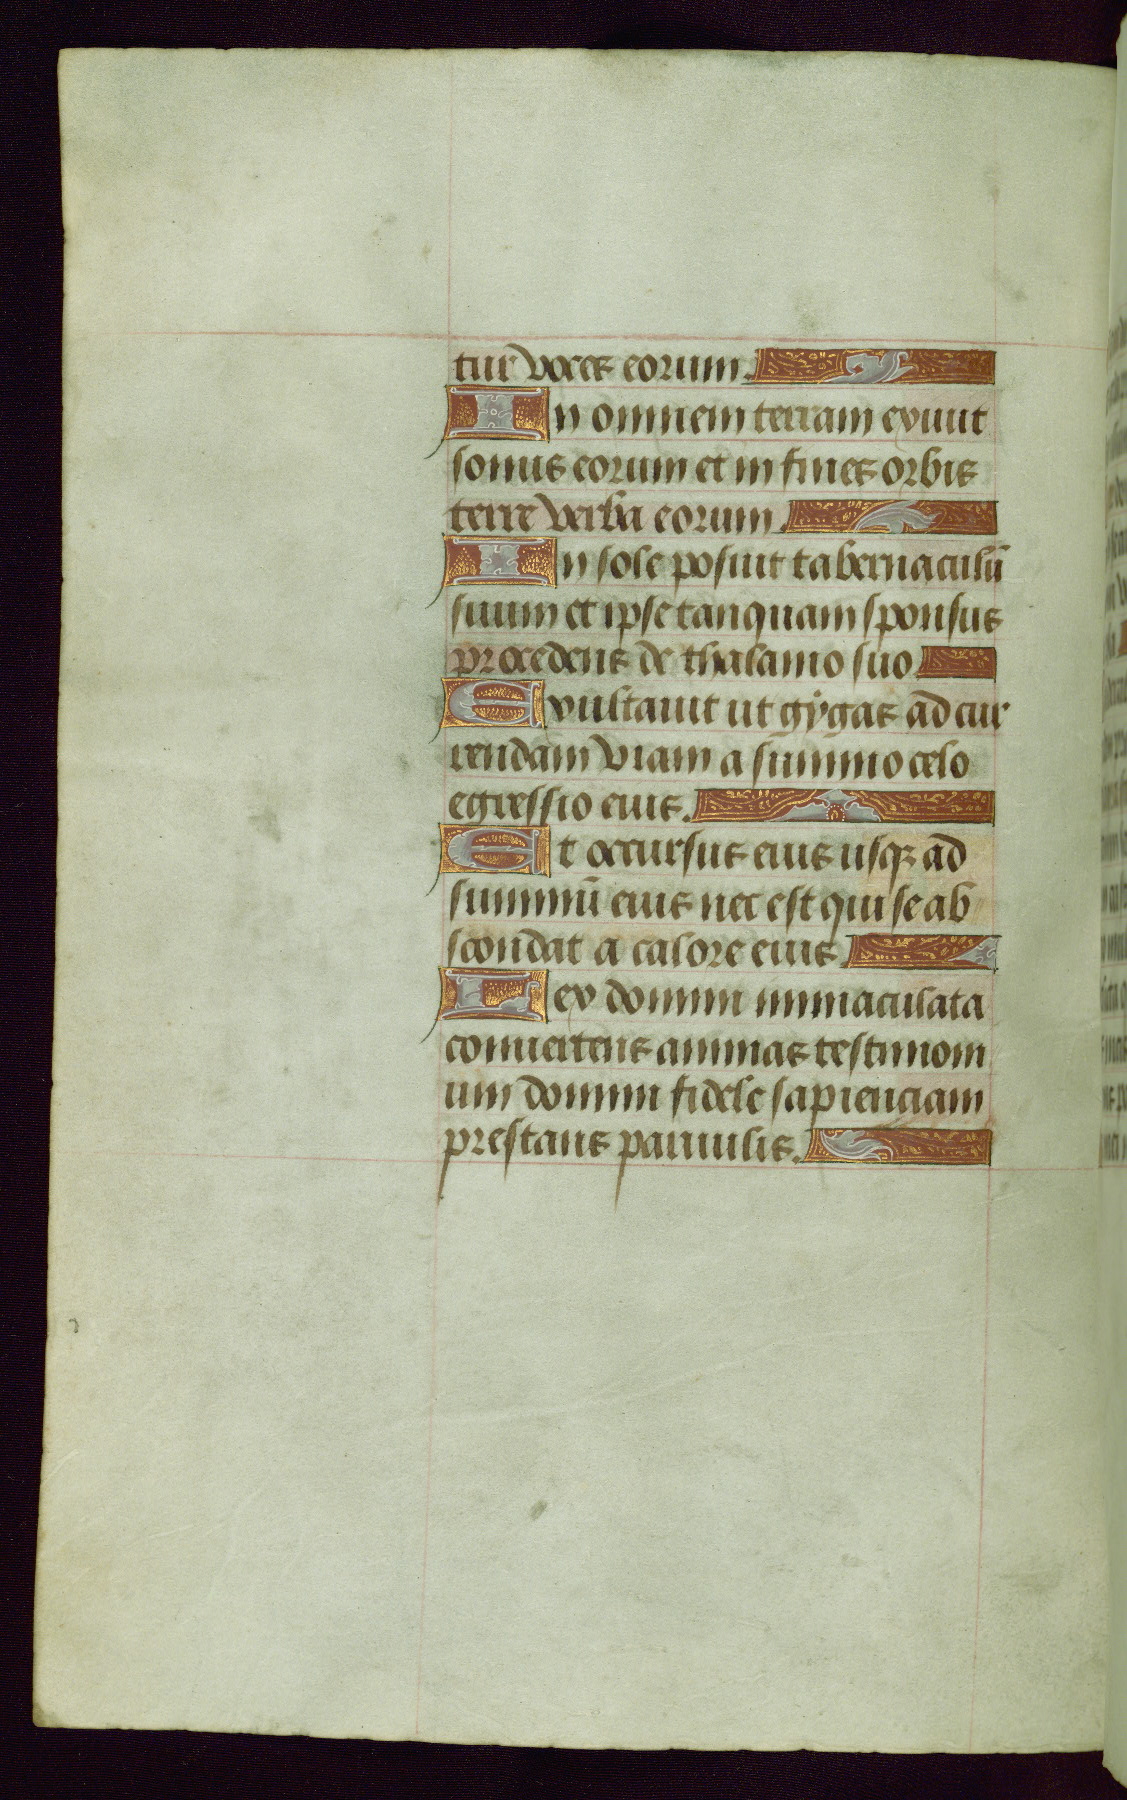 tur voces eorum.
In omnem terram exiuit
sonus eorum et in fines orbis
terre verba eorum.
In sole posuit tabernaculū
suum et ipse tanquam sponsus
procedens de thalamo suo
Exultauit ut gygas ad cur
rendam viam a summo celo
egressio eius.
Et occursus eius usqꝫ ad
summū eius nec est qui se ab
scondat a calore eius.
Lex domini immaculata
conuertens animas testimoni
um domini fidele sapienciam
prestans paruulis.